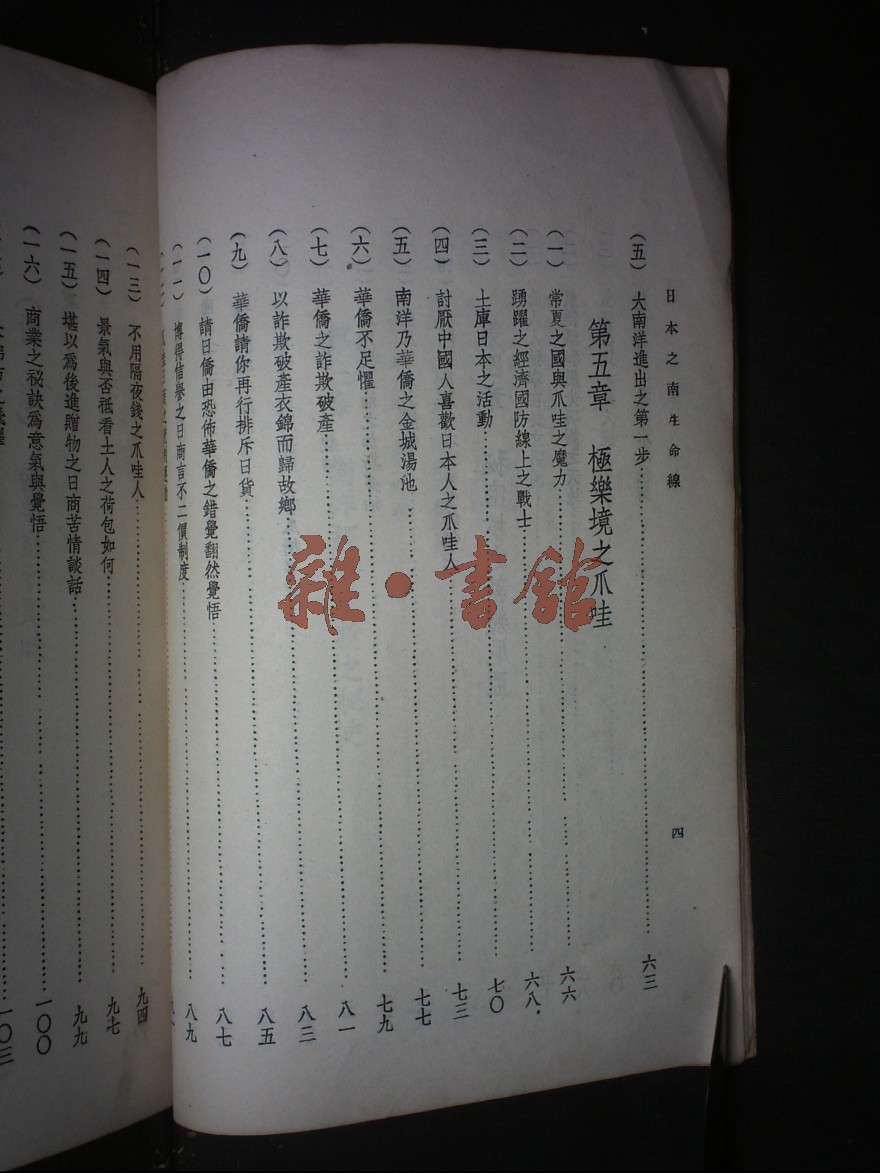 日本之南生命線
四
(五) 大南洋進出之第一步 六三
第五章 極樂境之爪哇
(一) 常夏之國與爪哇之魔力 六六
(二) 踴躍之經濟國防線上之戰士 六八
(三) 土庫日本之活動 七〇
(四) 討厭中國人喜歡日本人之爪哇人 七三
(五) 南洋乃華僑之金城湯池 七七
(六) 華僑不足懼 七九
(七) 華僑之詐欺破產 八一
(八) 以詐欺破產衣錦而歸故鄉 八三
(九) 華僑請你再行排斥日貨 八五
(一〇) 請日僑由恐佈華僑之錯覺翻然覺悟 八七
(一一) 博得信譽之日商言不二價制度 八九
(一三) 不用隔夜錢之爪哇人 九四
(一四) 景氣與否祗看土人之荷包如何 九七
(一五) 堪以爲後進贈物之日商苦情談話 九九
(一六) 商業之祕訣爲意氣與覺悟 一〇〇
一〇三
雜·書館